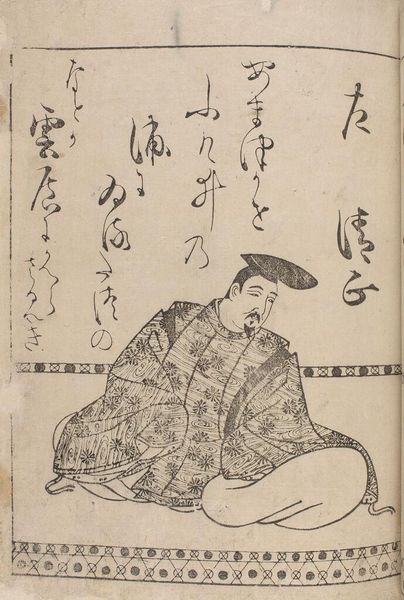 左 清正
あま津かせ
ふけ井乃
浦に
ゐるたつの
なとか
雲居にかへらさるへき